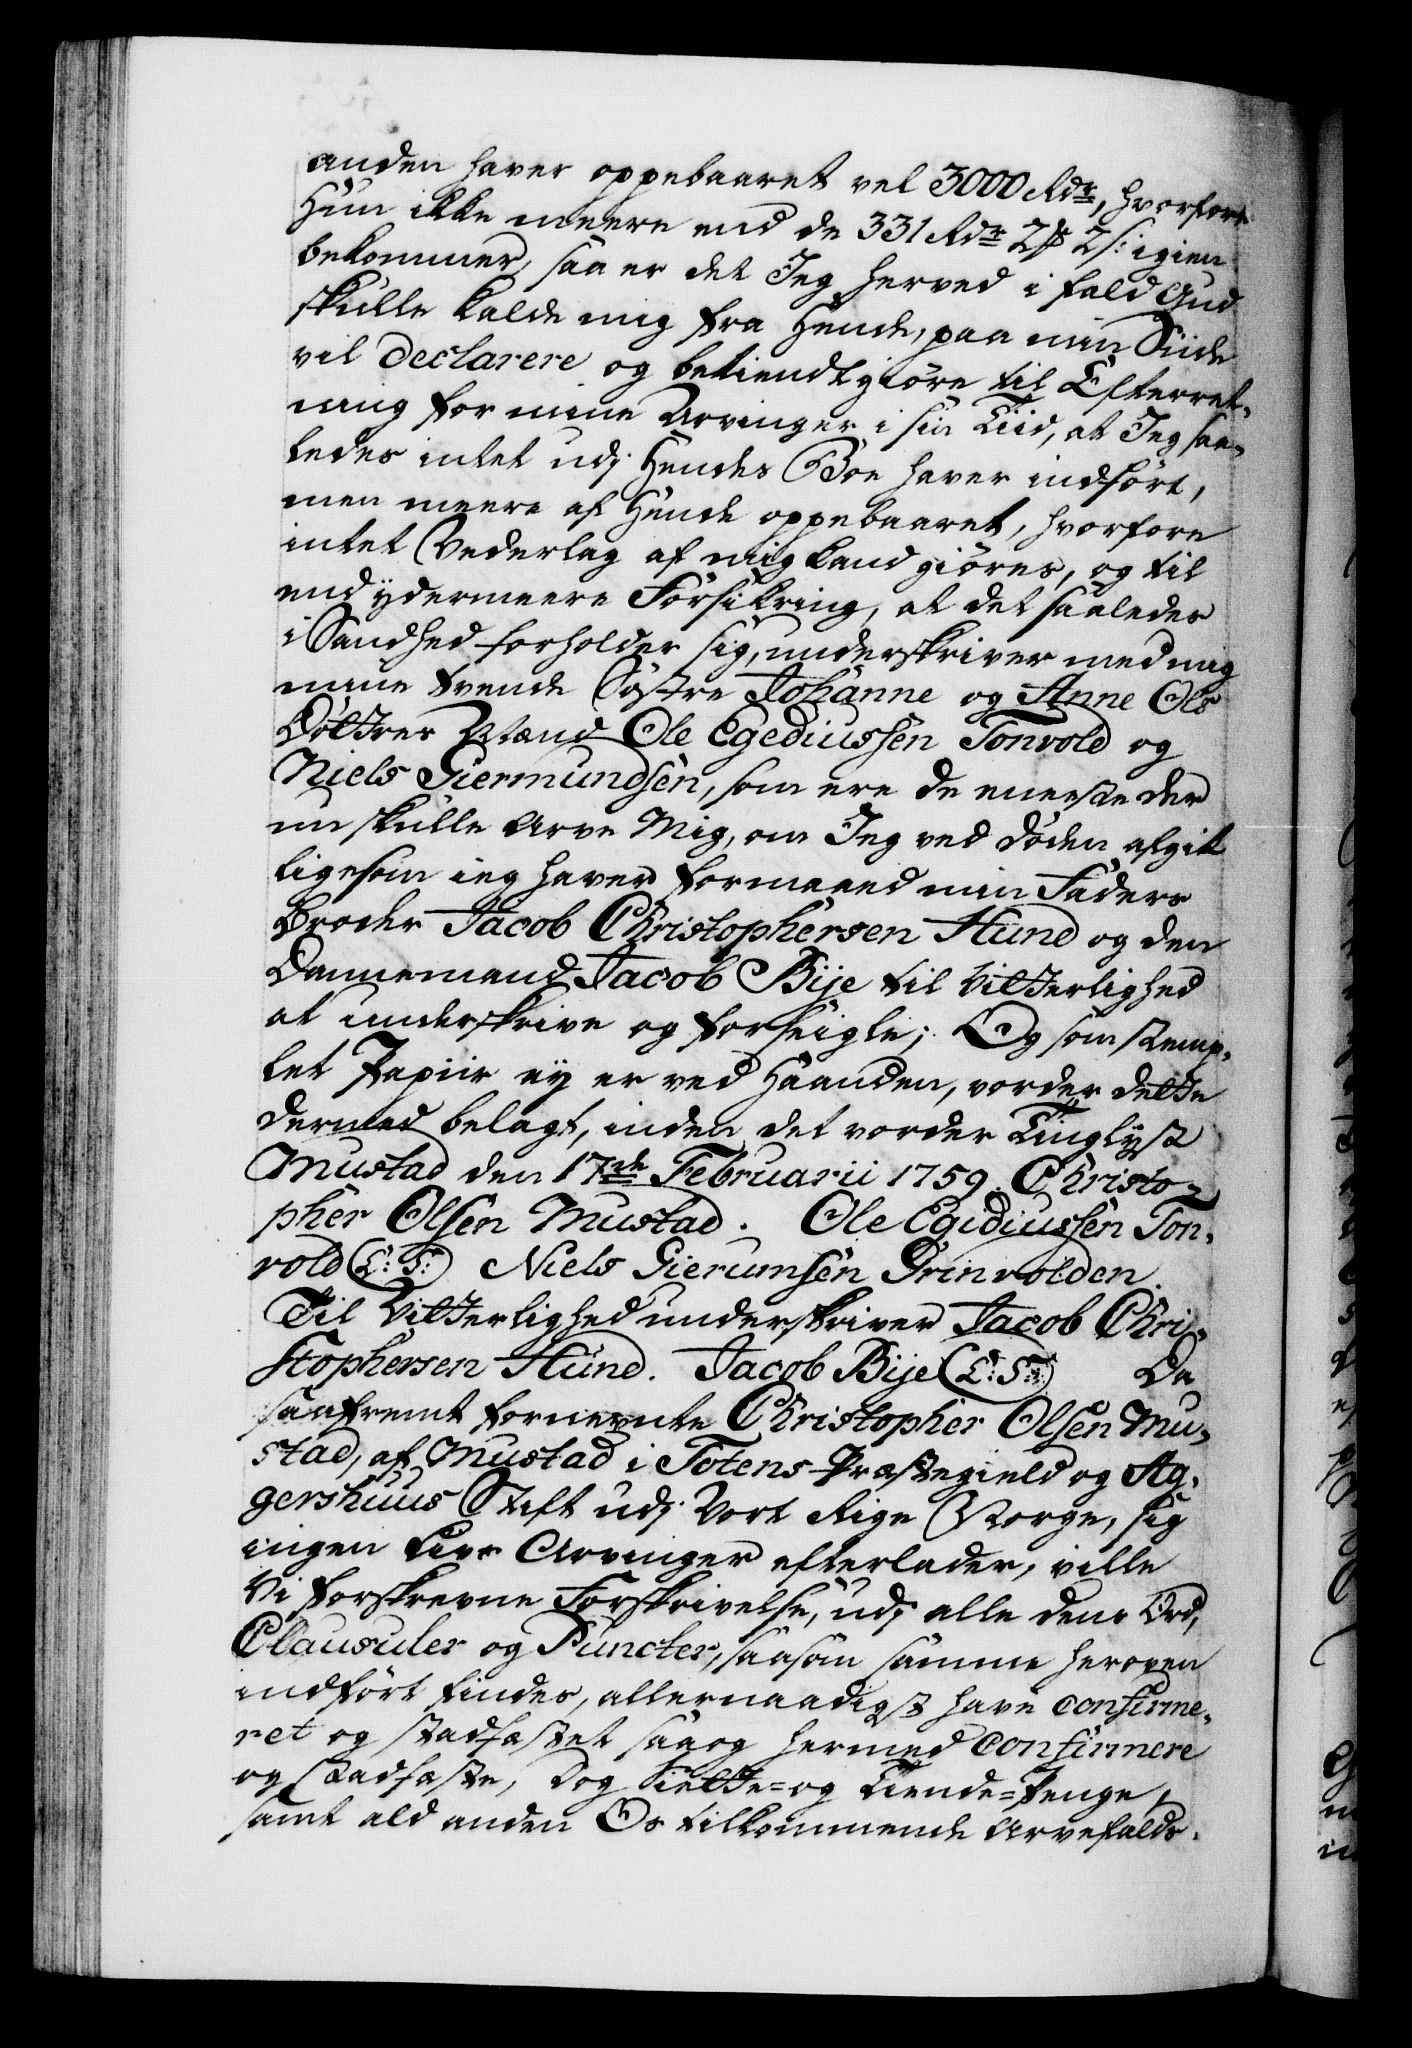 anden haver oppebaaret vel 3000 Rdr, hvorfore
Hun ikke meere end de 331 Rdr 2 ß: igien
bekommer, saa er det Jeg herved i fald Gud
skulle kalde mig fra Hende, paa min Siide
vil declarere og bekiendtgiøre til Efterret-
ning for mine Arvinger i sin Tiid, at Jeg saa-
ledes intet udj Hendes Boe haver indført,
men meere af Hende oppebaaret, hvorfore
intet Vederlag af mig kand giøres, og til
end ydermeere Forsikring, at det saaledes
i Sandhed forholder sig, underskriver med mig
mine tvende Søstre Johanne og Anne Ols
Døttres Mænd Ole Egediussen Tonvold og
Niels Giermundsen, som ere de eneeste der
nu skulle Arve Mig, om Jeg ved Døden afgik
ligesom ieg haver formaaed min Faders
Broder Jacob Christophersen Hund og den
Dannemand Jacob Bije til Vitterlighed
at underskrive og forseigle; Og som stemp-
let Papiir ey er ved Haanden, vorder dette
dermed belagt, inden det vorder Tinglyst
Mustad den 17de Februarii 1759. Christo-
pher Olsen Mustad. Ole Egidiussen Ton-
vold (L: S:) Niels Gierumsen Grinvolden.
Til Vitterlighed underskriver Jacob Chri-
stophersen Hund. Jacob Bije (L: S:) Da
saafremt fornevnte Christopher Olsen Mu-
stad, af Mustad i Totens Præstegield og Ag-
gershuus Stift udj Vort Rige Norge, sig
ingen Livs Arvinger efterlader, ville
Vi forskrevne Forskrivelse, udj alle dens Ord,
Clausuler og Puncter, saasom samme heroven
indført findes, allernaadigst have confirme-
ret og stadfæstet saa og hermed confirmere
og stadfæste, Dog Siette= og Tiende=Penge,
samt ald anden Os tilkommende Arvefalds-